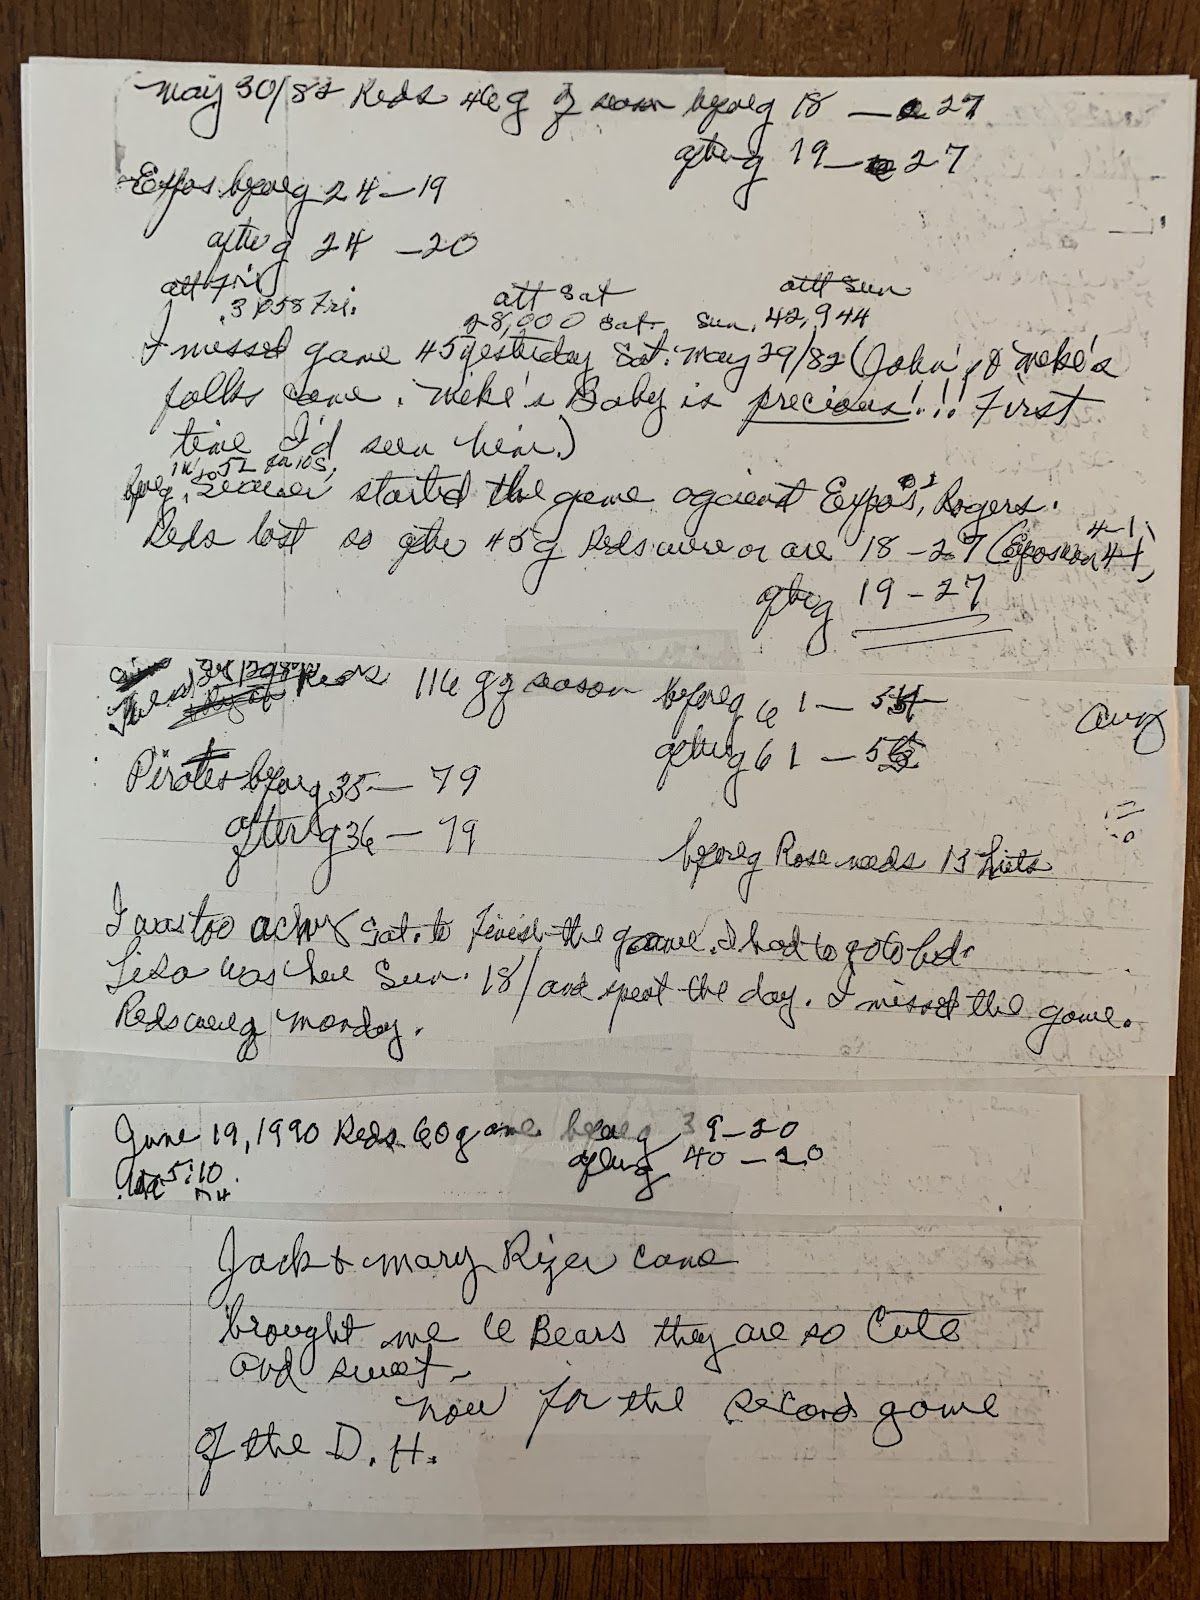 May 30/82 Reds 46 g of season before g 18 — 27
after g 19 — 27
Expos before g 24 — 19
after g 24 — 20
att Fri
Fri. att Sat att Sun
28,000 Sat. Sun. 42,944
I missed game 45 yesterday Sat. May 29/82 (John's & Meke's
folks came. Meke's Baby is precious!.!! First
time I'd seen him.)
before g. Seaver started the game against Expo's, Rogers.
Reds lost so after 45 g Reds were or are 18 – 27 (Expos won 4-1)
after g 19 – 27
Reds 116 g of season before g 61 — 54
Aug
after g 61 — 55
Pirates before g 35 — 79
after g 36 — 79
before g Rose needs 13 hits
I was too achy Sat. to finish the game. I had to go to bed.
Lisa was here Sun. 18/ and spent the day. I missed the game.
Reds g Monday.
June 19, 1990 Reds 60 game before g 39 – 20
5:10 after g 40 – 20
DH
Jack & Mary Rizer came
brought me 6 Bears they are so Cute
and sweet –
now for the second game
of the D.H.